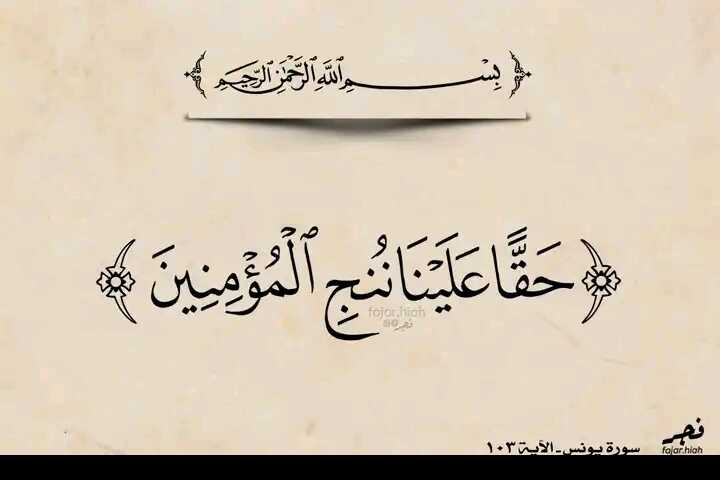 بِسْمِ ٱللَّهِ ٱلرَّحْمَٰنِ ٱلرَّحِيمِ
﴿حَقًّا عَلَيْنَا نُنجِ ٱلْمُؤْمِنِينَ﴾
fajar.hiah
@فجر
فجر
fajar.hiah
سورة يونس - الآية ١٠٣